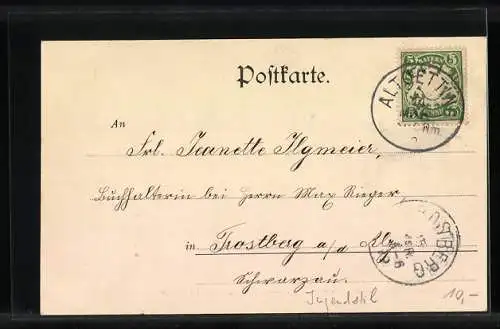 5 BAYERN 5
Postkarte.
ALTOETTING
An
Frl. Jeanette Ilgmeier,
Buchhalterin bei Herrn Max Rieger,
in Trostberg a/d Alz.
TROSTBERG
Schwarzau.
Jugendstil
10,-